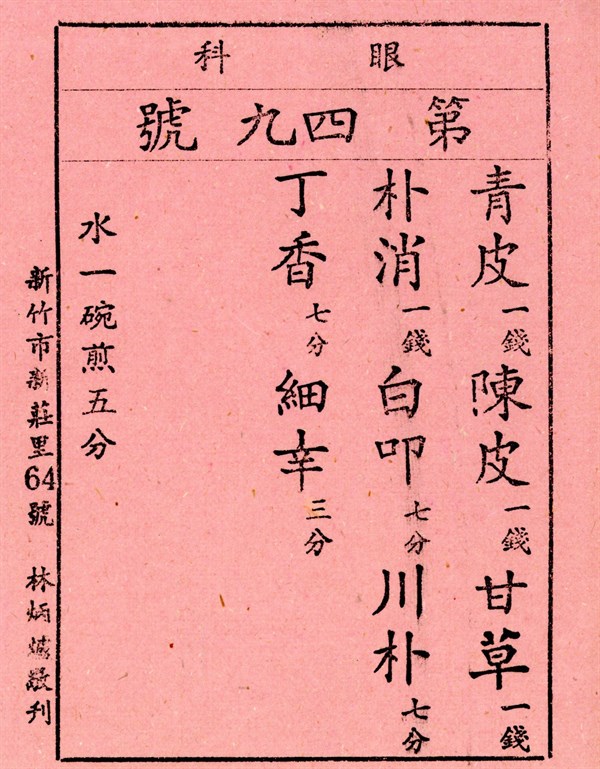 眼科
第四九號
青皮一錢陳皮一錢甘草一錢
朴消一錢白叩七分川朴七分
丁香七分細辛三分
水一碗煎五分
新竹市新莊里64號 林炳敬刊